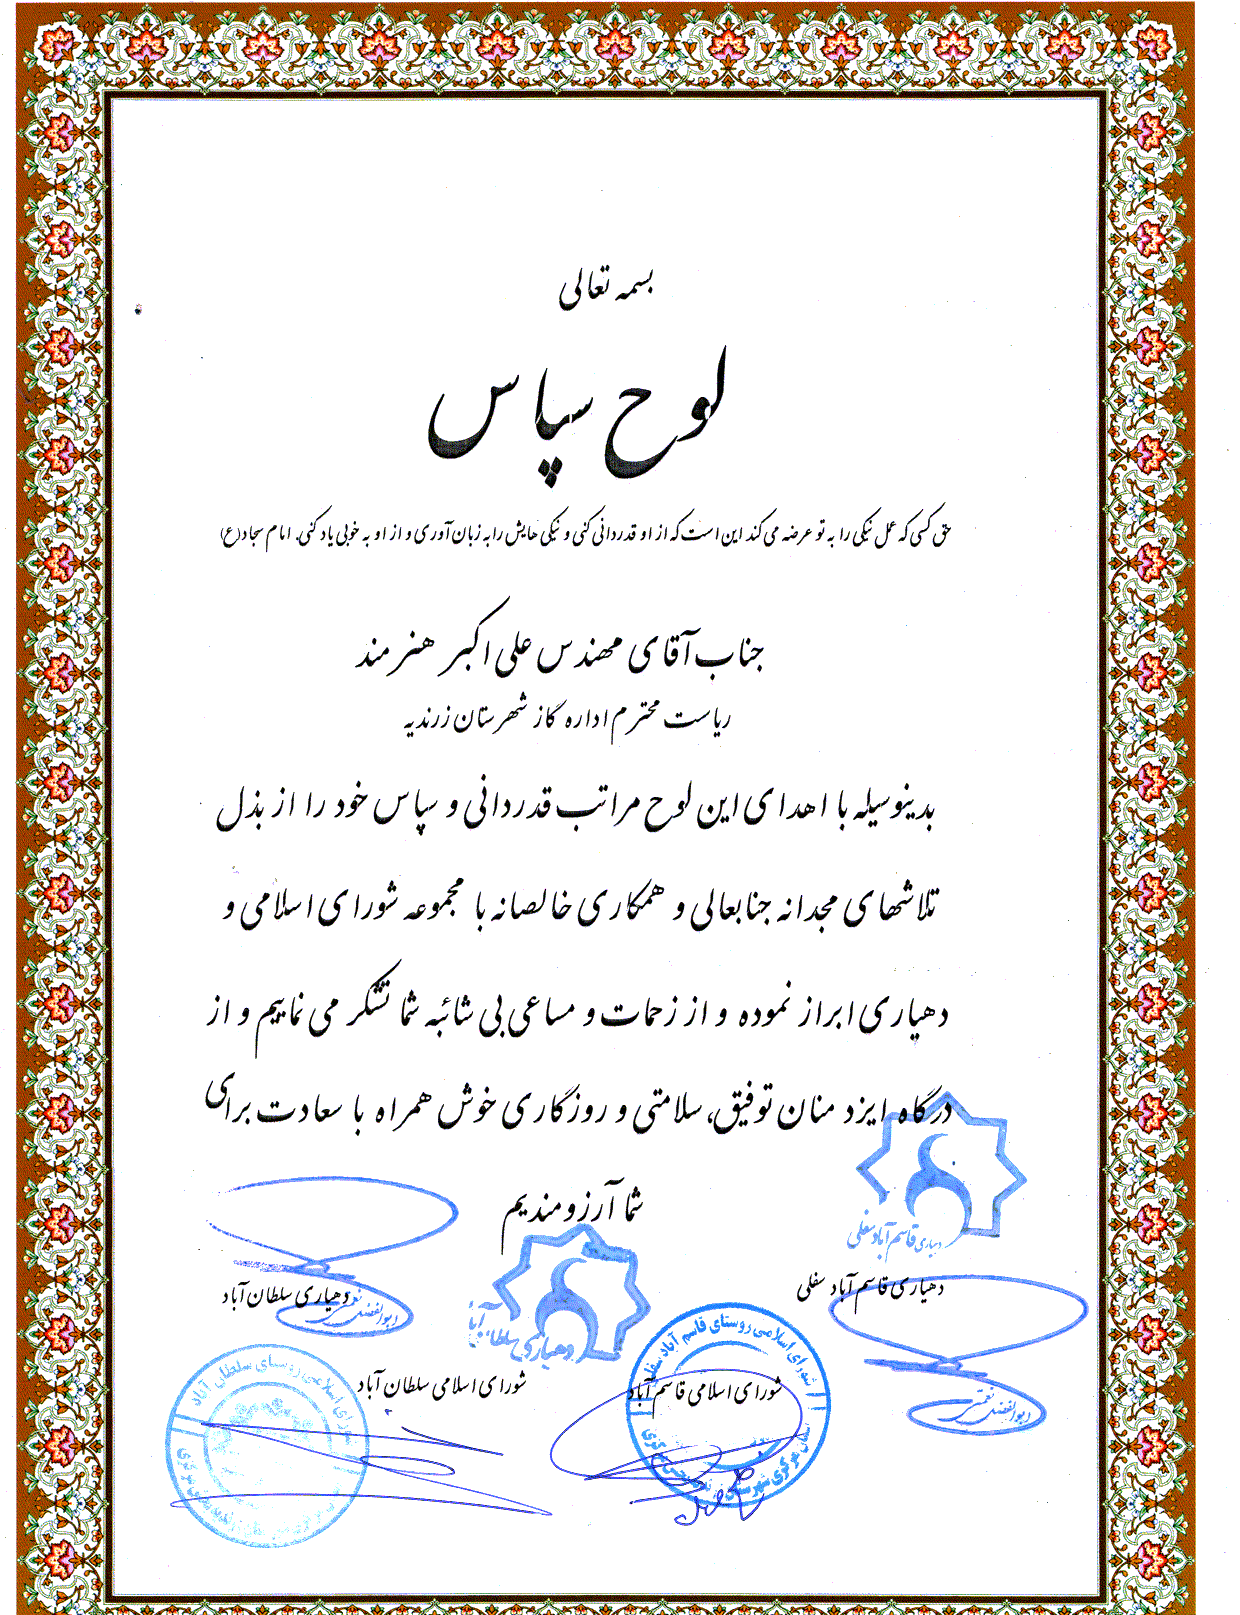 بسمه تعالی
لوح سپاس
حق کسی که عمل نیکی را به تو عرضه می کند این است که از او قدردانی کنی و نیکی هایش را به زبان آوری و از او به خوبی یاد کنی. امام سجاد(ع)
جناب آقای مهندس علی اکبر هنرمند
ریاست محترم اداره گاز شهرستان زرندیه
بدینوسیله با اهدای این لوح مراتب قدردانی و سپاس خود را از بذل
تلاشهای مجدانه جنابعالی و همکاری خالصانه با مجموعه شورای اسلامی و
دهیاری ابراز نموده و از زحمات و مساعی بی شائبه شما تشکر می نماییم و از
درگاه ایزد منان توفیق، سلامتی و روزگاری خوش همراه با سعادت برای
شما آرزومندیم
دهیاری قاسم آباد سفلی
دهیاری قاسم آباد سفلی
دهیاری سلطان آباد
دهیاری سلطان آباد
ابوالفضل نعمتی
ابوالفضل نعمتی
شورای اسلامی قاسم آباد
شورای اسلامی سلطان آباد
شورای اسلامی روستای قاسم آباد سفلی
استان مرکزی شهرستان
شورای اسلامی روستای سلطان آباد